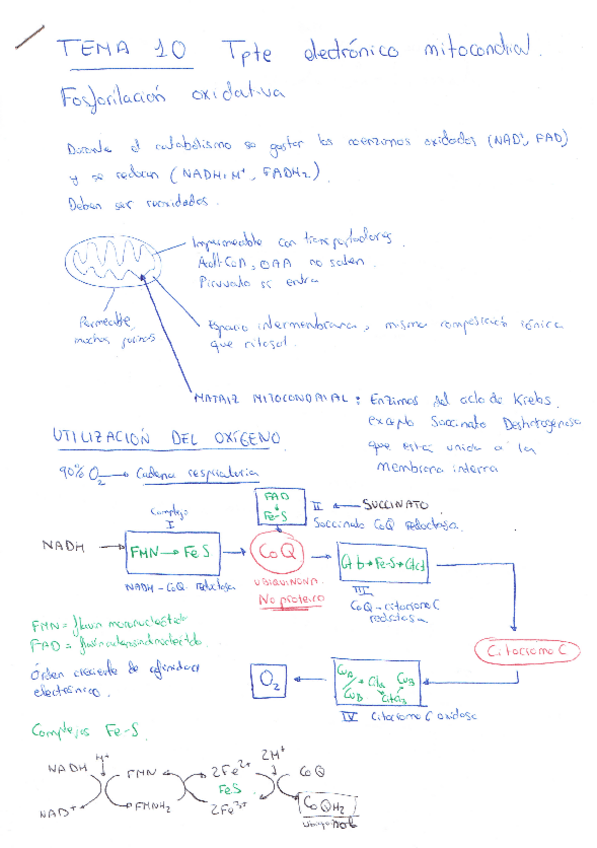 TEMA 10 Tpte electrónico mitocondrial.
Fosforilación oxidativa
Durante el catabolismo se gastan los coenzimas oxidados (NAD⁺, FAD)
y se reducen (NADH, H⁺, FADH₂).
Deben ser reoxidados.
Impermeable con transportadores.
Acetil-CoA, OAA no salen
Piruvato sí entra
Permeable, muchas porinas
Espacio intermembrana, misma composición iónica
que citosol.
MATRIZ MITOCONDRIAL: Enzimas del ciclo de Krebs
excepto Succinato Deshidrogenasa
que está unida a la
membrana interna
UTILIZACIÓN DEL OXÍGENO
90% O₂ → Cadena respiratoria
FAD
Fe-S
II ← SUCCINATO
Succinato CoQ reductasa.
Complejo
I
NADH → FMN → FeS → CoQ → Cit b → Fe-S → Cit c1
NADH-CoQ reductasa
UBIQUINONA
No proteico
III
CoQ-citocromo C
reductasa
FMN = flavin mononucleótido
FAD = flavin adenin dinucleótido
Citocromo C
Orden creciente de afinidad
electrónica.
O₂
CuA Cit a CuB
CuD Cit a3
IV Citocromo C oxidasa
Complejos Fe-S.
NADH H⁺ FMN 2Fe²⁺ 2H⁺ CoQ
FeS
NAD⁺ FMNH₂ 2Fe³⁺ CoQH₂
ubiquinol